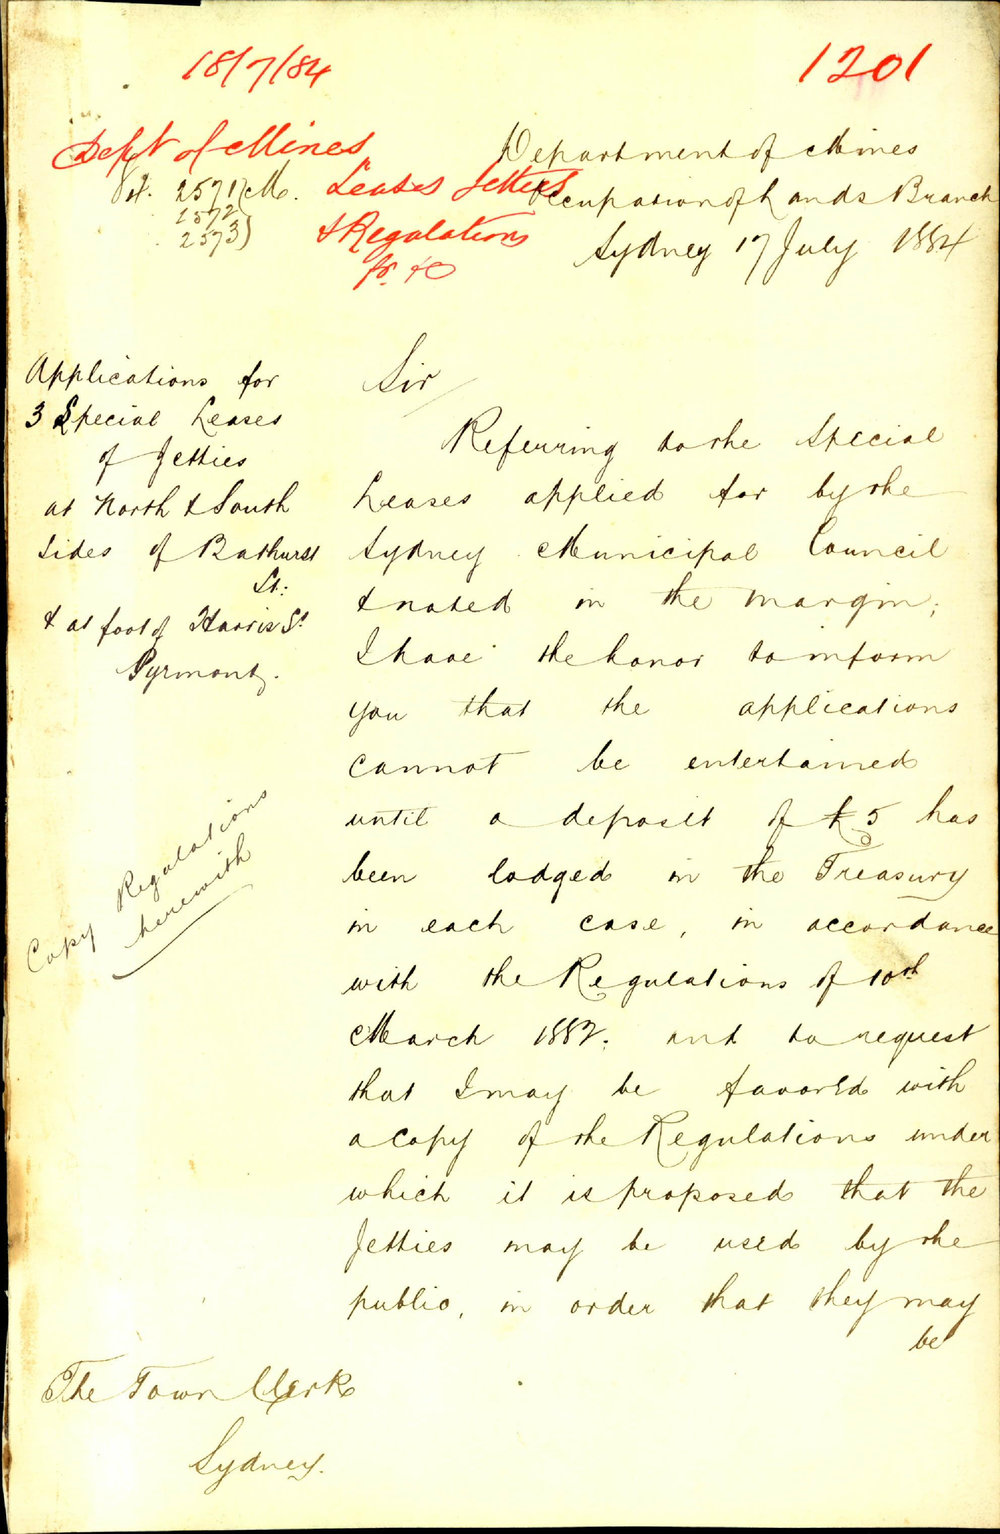 18/7/84
1201
Dept of Mines
Leases Jetties
& Regulations
2571 M.
2572
2573
Department of Mines
Occupation of Lands Branch
Sydney 17 July 1884
Applications for
3 Special Leases
of Jetties
at North & South
Sides of Bathurst
St:
& at foot of Harris St
Pyrmont.
Copy Regulations
herewith
Sir
Referring to the Special
Leases applied for by the
Sydney Municipal Council
& noted in the margin;
I have the honor to inform
you that the applications
cannot be entertained
until a deposit of £5 has
been lodged in the Treasury
in each case, in accordance
with the Regulations of 10th
March 1882. and to request
that I may be favored with
a copy of the Regulations under
which it is proposed that the
Jetties may be used by the
public, in order that they may
be
The Town Clerk
Sydney.